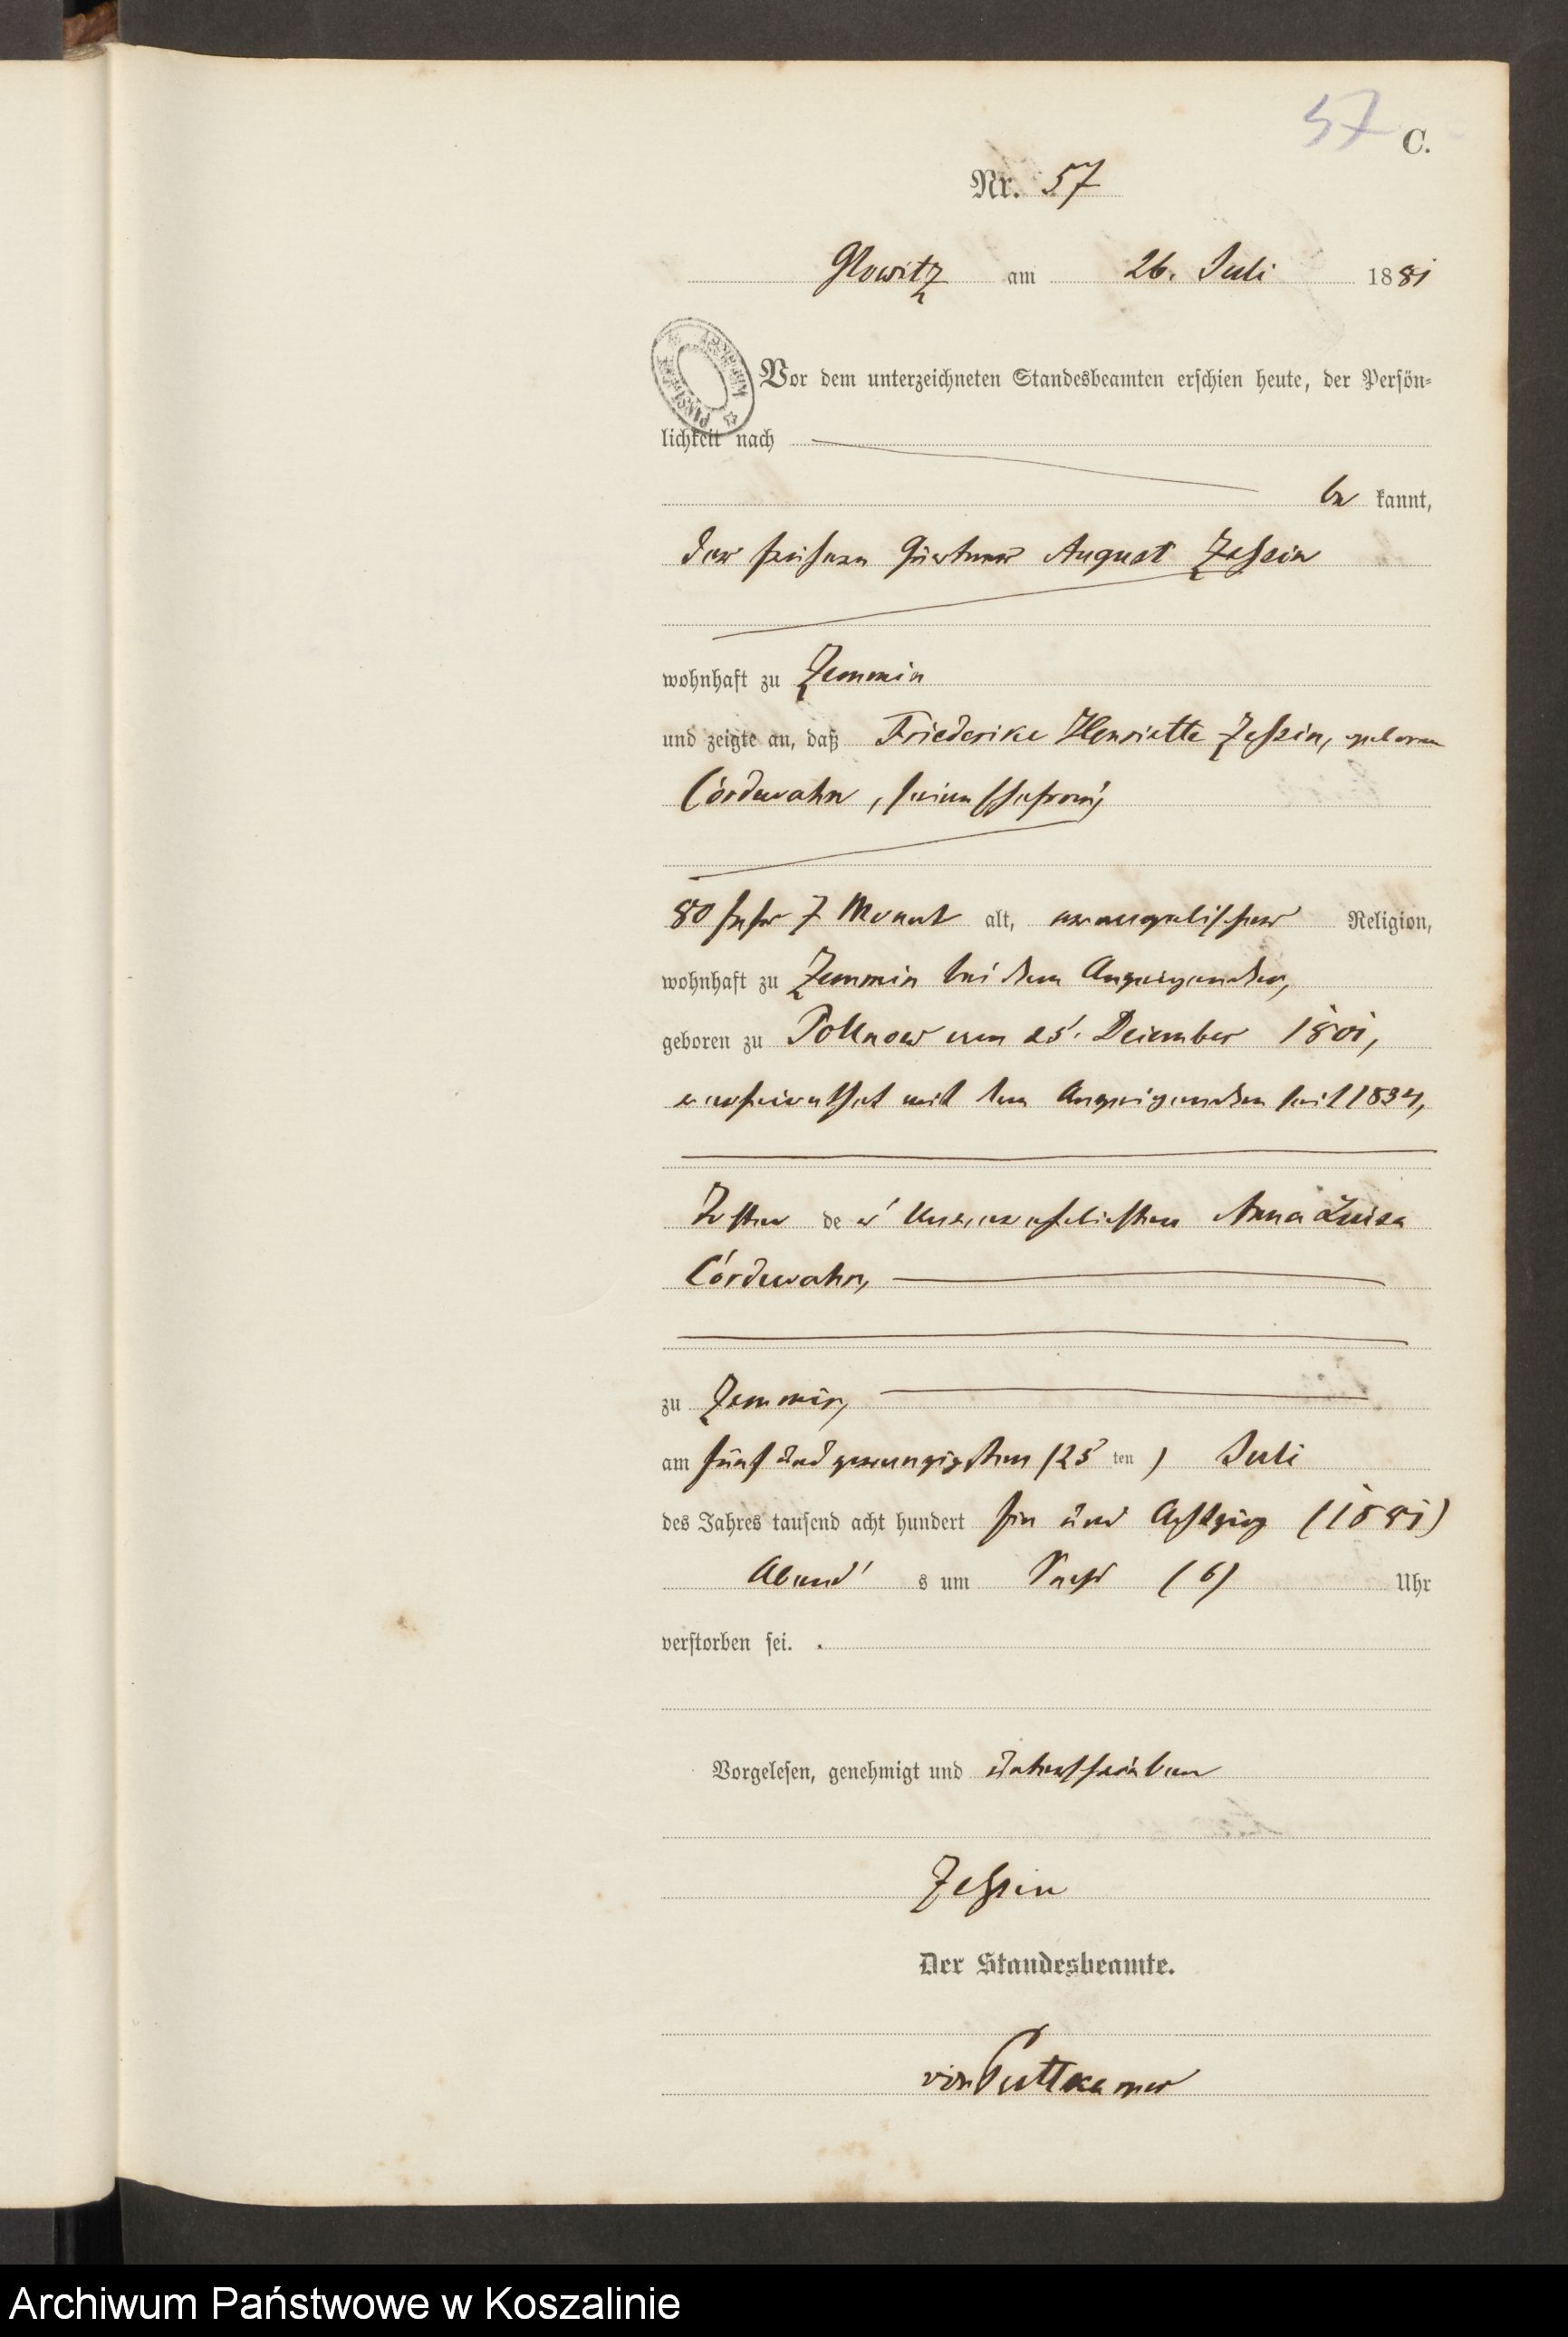 57 C.
Nr. 57
Glowitz am 26. Juli 1881
Vor dem unterzeichneten Standesbeamten erschien heute, der Persön-
lichkeit nach
be kannt,
der frühere Gärtner August Zessin
wohnhaft zu Zemmin
und zeigte an, daß Friederike Henriette Zessin, geborne
Cörduwahn, seine Ehefrau,
80 Jahr 7 Monat alt, evangelischer Religion,
wohnhaft zu Zemmin bei dem Anzeigenden,
geboren zu Pollnow am 25. Dezember 1801,
verheirathet mit dem Anzeigenden seit 1834,
Tochter de r unverehelichten Anna Luise
Cörduwahn,
zu Zemmin,
am fünf und zwanzigsten (25 ten ) Juli
des Jahres tausend acht hundert ein und Achtzig (1881)
Abend s um Sechs (6) Uhr
verstorben sei.
Vorgelesen, genehmigt und unterschrieben
Zessin
Der Standesbeamte.
von Puttkamer
Archiwum Państwowe w Koszalinie